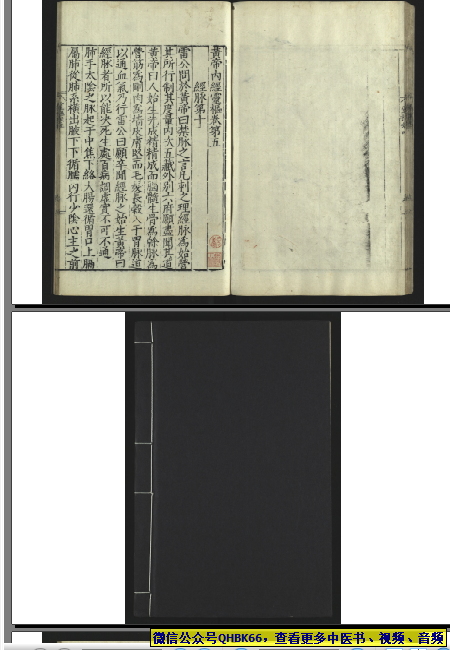 黃帝內經靈樞卷第五
經脉第十
雷公問於黃帝曰禁脉之言凡刺之理經脉爲始營
其所行制其度量內次五藏外別六府願盡聞其道
黃帝曰人始生先成精精成而腦髓生骨爲幹脉爲
營筋爲剛肉爲墻皮膚堅而毛髮長穀入于胃脉道
以通血氣乃行雷公曰願卒聞經脉之始生黃帝曰
經脉者所以能決死生處百病調虛實不可不通
肺手太陰之脉起于中焦下絡大腸還循胃口上膈
屬肺從肺系橫出腋下下循臑內行少陰心主之前
微信公众号QHBK66，查看更多中医书、视频、音频